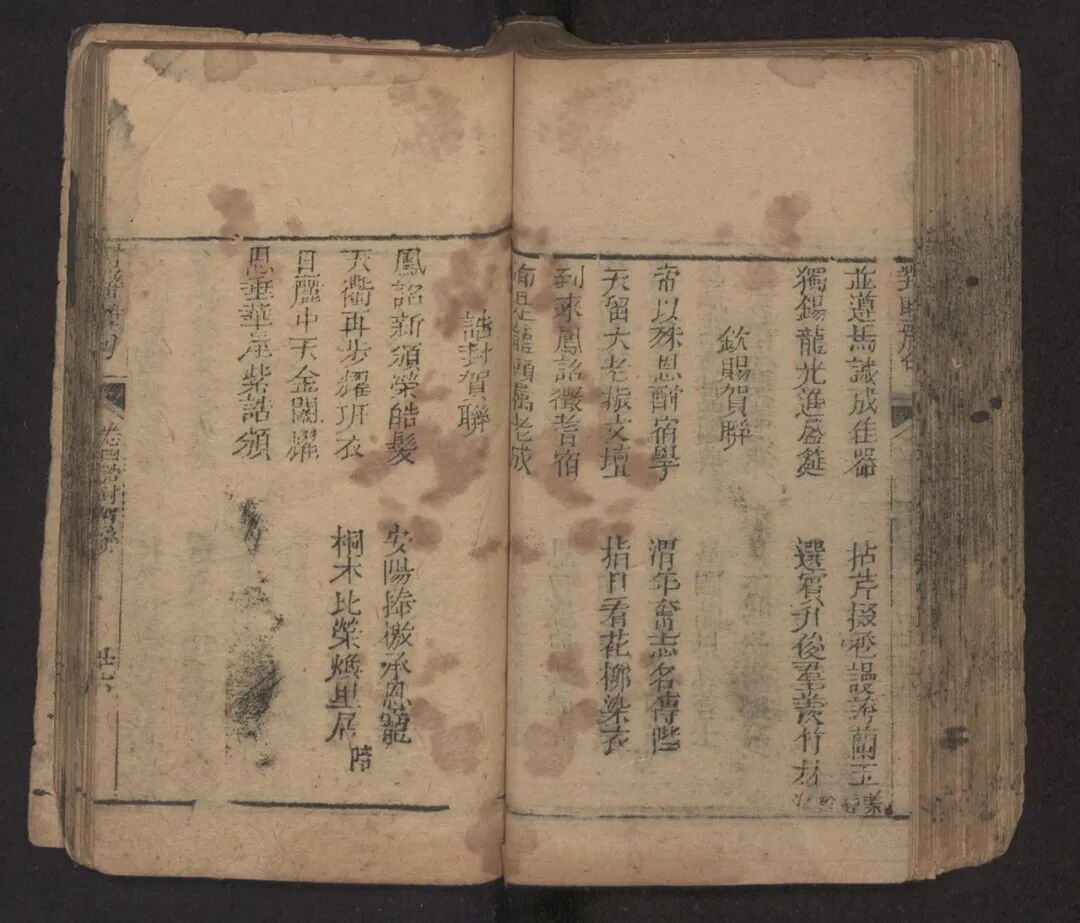 並遵馬誠成佳器
拈芹掇桼謾誇蘭玉
獨錫龍光進盛筵
選賓升後羣羨竹林
欽賜賀聯
帝以殊恩酧宿學
渭年奮志名傳陛
天留大老振文壇
指日看花柳染衣
到來鳳詔徵耆宿
龍頭屬老成
誥封賀聯
鳳詔新頒榮皓髮
安陽捧檄承恩寵
天衢再步耀班衣
桐木比榮煥里居
日麗中天金闕耀
恩垂華屋紫誥頒